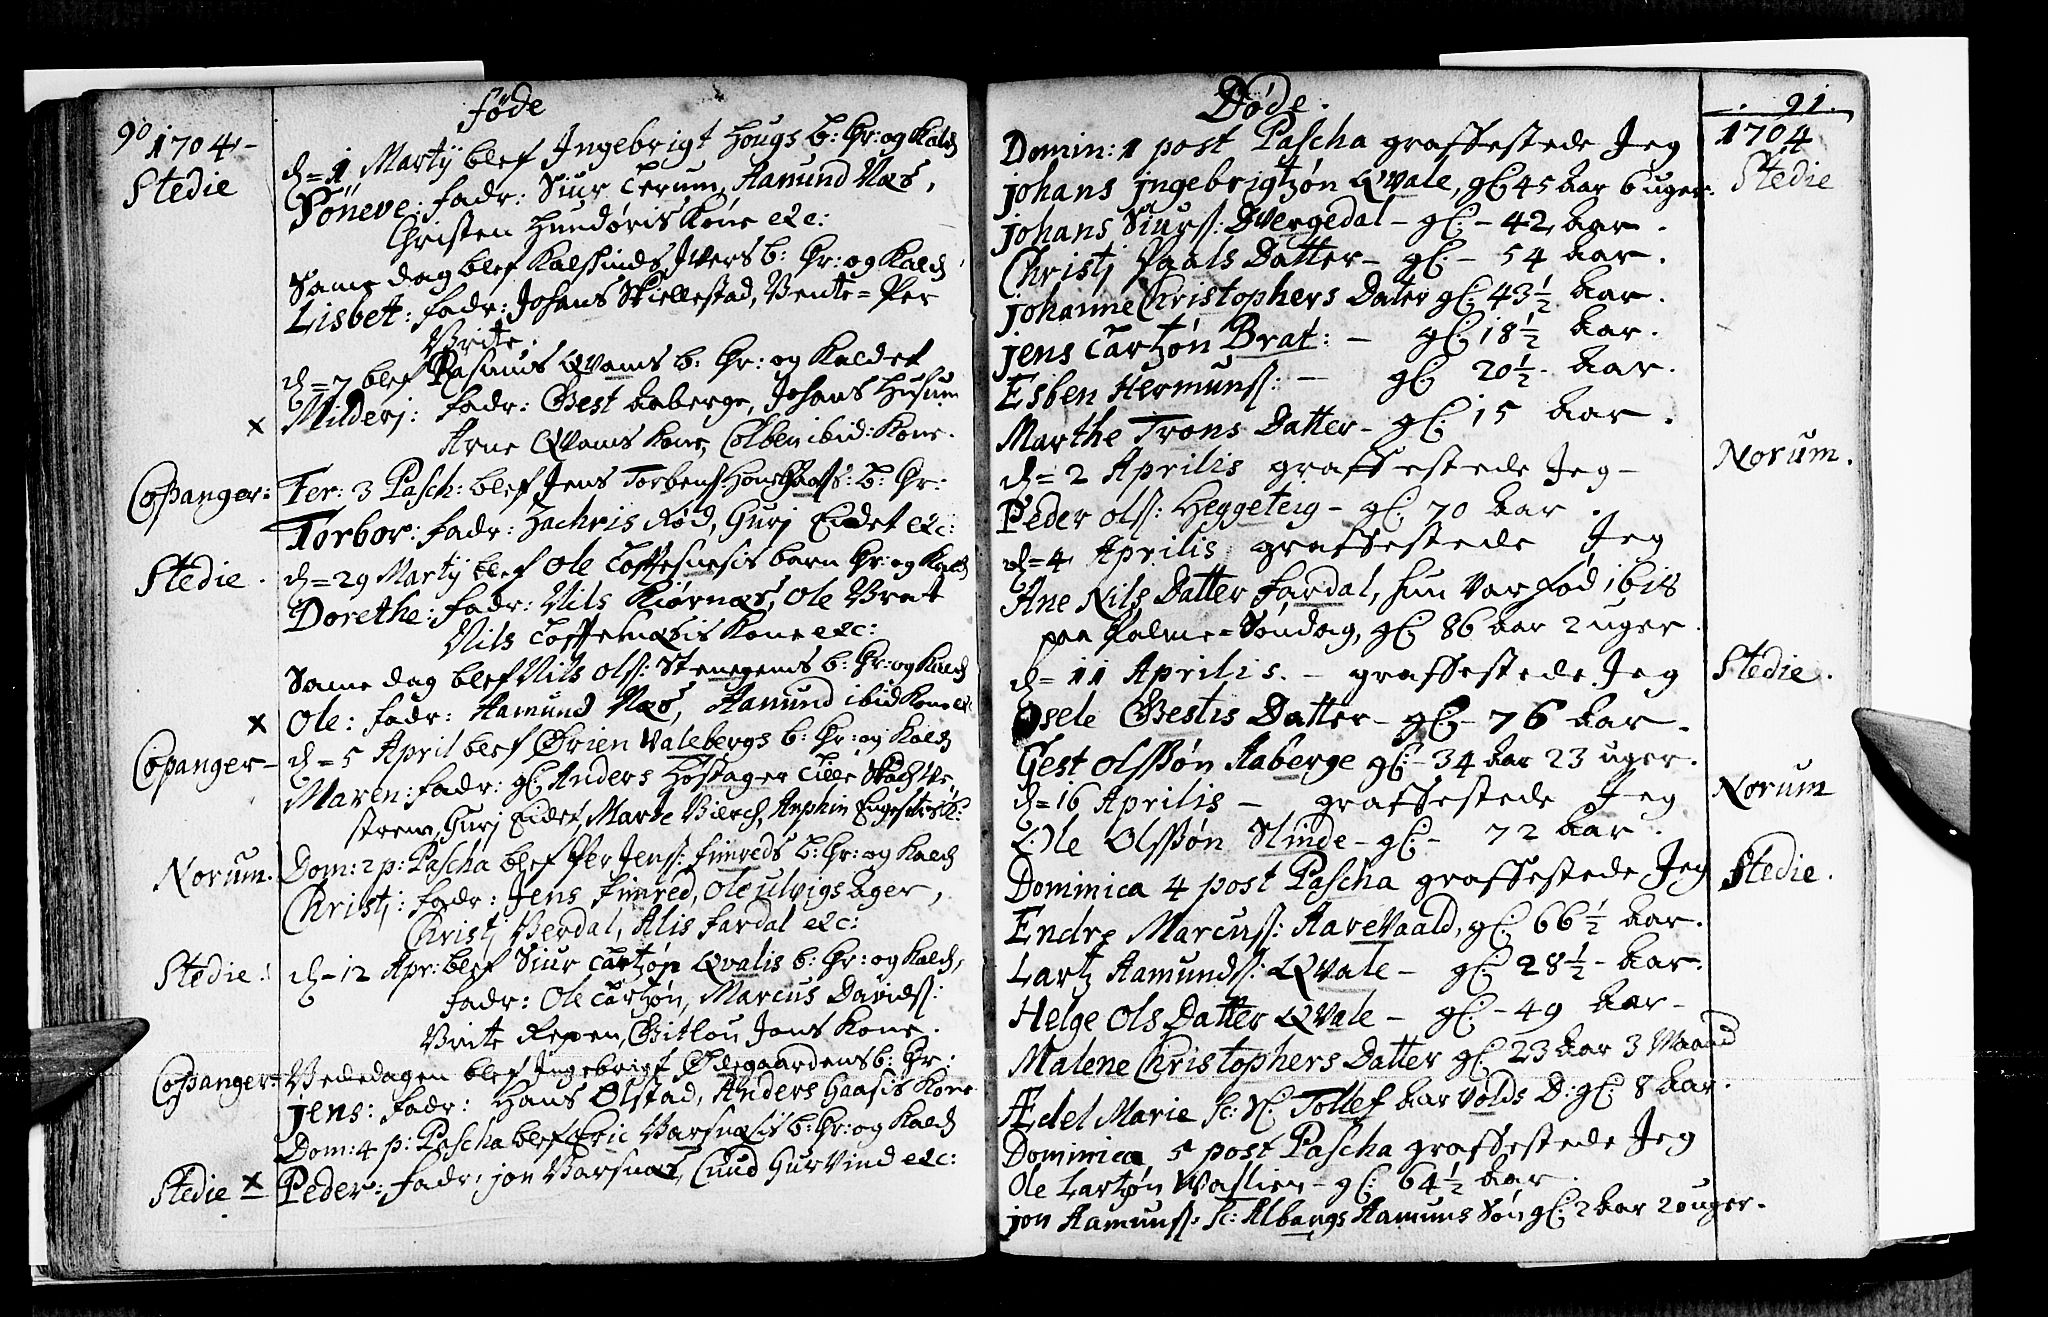 90 føde
1704
Stedie
d= 1 Martÿ blef Ingebrigt Hougs b: Chr: og Kald
Söneve: fadr: Siur Terum, Aamund Næs,
Christen Hundøris Kone etc:
Same dag blef Ivers b: Chr: og Kald
Lisbet: fadr: Johans Skiellestad, Bente= Per
Brite.
d= 7 blef Rasmus Qvams b: Chr: og Kaldet
x Milderj: fadr: Giest Aaberge, Johans Husum
Arne Qvams Kone, Colben ibid: Kone.
Copanger: Fer: 3 Pasch: blef Jens Torbens b: Chr:
Torbor: fadr: Zachris Rød, Gurj Eidet etc:
Stedie. d= 29 Martÿ blef Ole Loftesnesis barn Chr: og Kald
Dorethe: fadr: Nils Kiørnæs, Ole Brat
Nils Loftesnæsis Kone etc:
Same dag blef Nils Olss: Stenegens b: Chr: og Kald
x Ole: fadr: Aamund Næs, Aamund ibid Kone etc
Copanger– d= 5 April blef Ørien Valebergs b: Chr: og Kald
Maren: fadr: gl: Anders Hofslager Lille
strem, Gurj Eidet, Marte Bierch, Anphin
Norum. Dom: 2 p: Pascha blef Per Jenss: fimreds b: Chr: og Kald
Christj: fadr: Jens Fimred, Ole Ulvigs ager,
Christj Berdal, Alis fardal etc:
Stedie: d– 12 Apr: blef Siur Lartzøn Qvalis b: Chr: og Kald,
fadr: Ole Lartzøn, Marcus Davidss:
Brite Repen, Gitlou Jons Kone.
Copanger= Bededagen blef Ingebrigt Ødegaardens b: Chr:
jens: fadr: Hans Ølstad, Anders Haasis Kone
Dom: 4 p: Pascha blef Eric Barsnæsis b: Chr: og Kald
Stedie x Peder: fadr: jon Barsnæs, Cnud Gurvind etc:
Døde. 91.
1704
Domin: 1 post Pascha graffestede Jeg
johans jngebrigtzøn Qvale, gl: 45 Aar 6 uger. Stedie
johans Siurss: Dvergedal – gl: – 42 Aar.
Christj Paals Datter – gl: – 54 Aar.
johanne Christophers Dater gl: 43½ Aar.
jens Lartzøn Brat: – gl: 18½ Aar.
Esben Hermunss: – gl: 20½ Aar.
Marthe Trons Datter – gl: 15 Aar.
d= 2 Aprilis graffestede Jeg – Norum.
Peder olss: Heggeteig – gl: 70 Aar.
d= 4 Aprilis graffestede Jeg
Ane Nils Datter fardal, hun var fød 1618
paa Palme=Søndag, gl: 86 Aar 2 uger.
d= 11 Aprilis. – graffestede Jeg Stedie.
Osele Gestis Datter – gl: – 76 Aar –
Gest Olssøn Aaberge gl: – 34 Aar 23 uger.
d= 16 Aprilis – graffestede Jeg Norum
Ole Olssøn Slinde – gl: – 72 Aar.
Dominica 4 post Pascha graffestede Jeg Stedie.
Endre Marcuss: Aarevaald, gl: 66½ Aar.
Lartz Aamundss: Qvale – gl: 28½ – Aar.
Helge Ols Datter Qvale – gl: – 49 Aar –
Malene Christophers Datter gl: 23 Aar 3 Maaned
Ædel Marie Sc: H: Tollef Aarvolds D: gl: 8 Aar.
Dominica 5 post Pascha graffestede Jeg
Ole Lartzøn Waslien – gl: 64½ Aar.
jon Aamunss: Sc: Albangs Aamuns Søn gl: 2 Aar 20 uger.